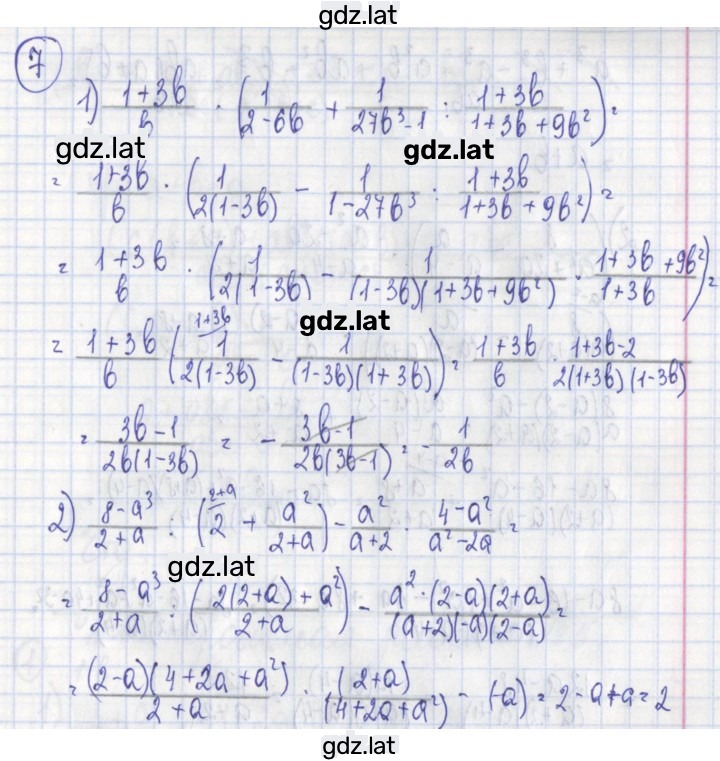 gdz.lat
7
1) (1+3b)/b · (1/(2-6b) + 1/(27b³-1) : (1+3b)/(1+3b+9b²)) =
gdz.lat gdz.lat
= (1+3b)/b · (1/(2(1-3b)) - 1/(1-27b³) : (1+3b)/(1+3b+9b²)) =
= (1+3b)/b · (1/(2(1-3b)) - 1/((1-3b)(1+3b+9b²)) · (1+3b+9b²)/(1+3b)) =
gdz.lat
= (1+3b)/b (1^(1+3b)/(2(1-3b)) - 1/((1-3b)(1+3b))) = (1+3b)/b · (1+3b-2)/(2(1+3b)(1-3b))
= (3b-1)/(2b(1-3b)) = - (3b-1)/(2b(3b-1)) = - 1/(2b)
2) (8-a³)/(2+a) : (2^(2+a) + a²/(2+a)) - a²/(a+2) · (4-a²)/(a²-2a) =
gdz.lat
= (8-a³)/(2+a) : ((2(2+a)+a²)/(2+a)) - (a²·(2-a)(2+a))/((a+2)(-a)(2-a)) =
= ((2-a)(4+2a+a²))/(2+a) · (2+a)/(4+2a+a²) - (-a) = 2-a+a = 2
gdz.lat